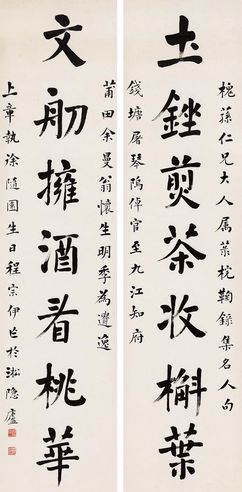 槐孫仁兄大人属菜枕鞠錄集名人句
土銼煎茶收槲葉
錢塘屠琴隖倬官至九江知府
莆田余曼翁懷生明季為遺逸
文舠擁酒看桃華
上章執徐隨園生日程宗伊書於淞隐廬